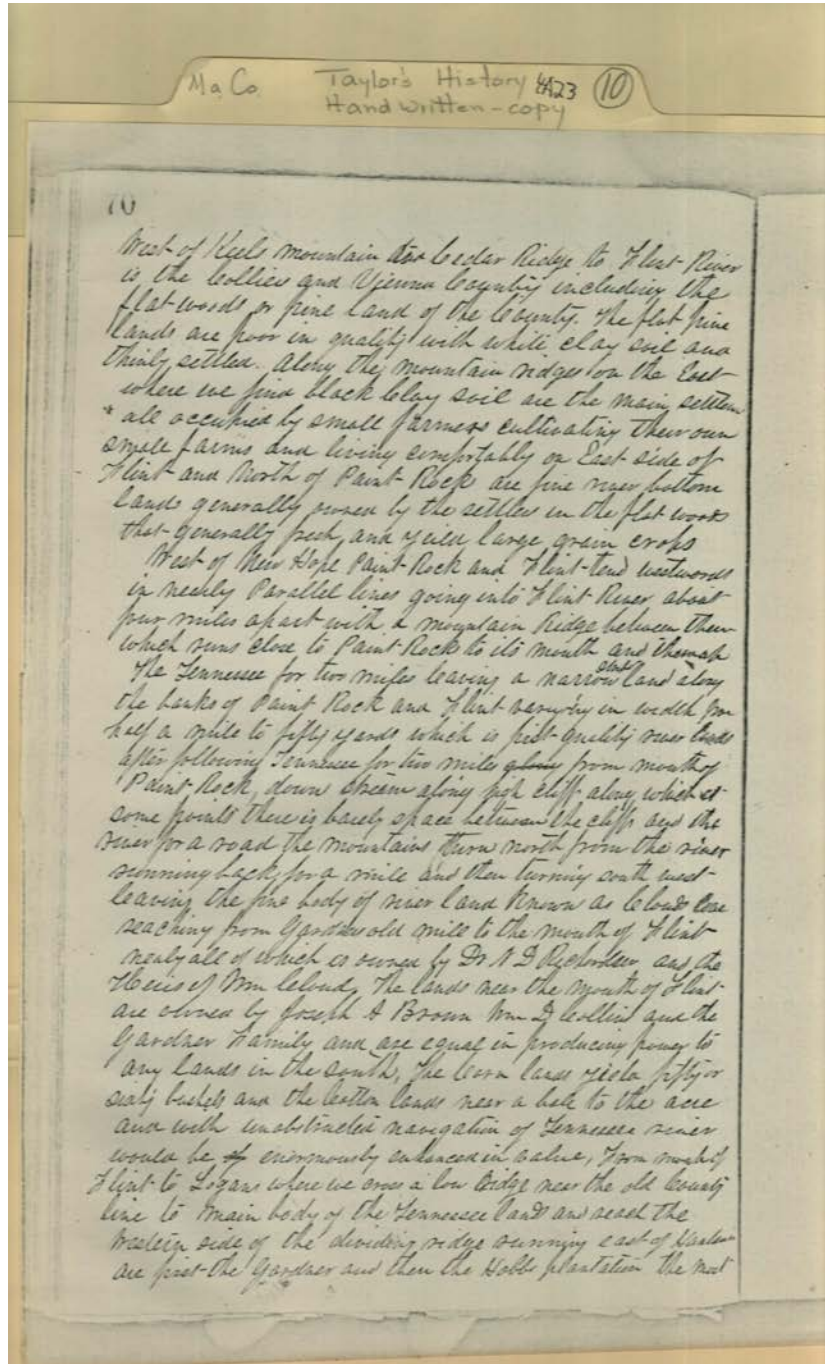 Ma Co Taylor's History 4A23 10
Handwritten - copy
10
West of Keels mountain Cedar Ridge to Flint River
is the Colliers and Vienna County including the
flat woods or pine land of the County. The flat pine
lands are poor in quality with white clay soil and
thinly settled. Along the mountain ridges on the East
where we find black Clay soil are the main settlem
all occupied by small farmers cultivating their own
small farms and living comfortably on East side of
Flint and North of Paint Rock are fine river bottom
lands generally owned by the settlers in the flat woods
that generally fresh and yield large grain crops
West of New Hope Paint Rock and Flint tend westwards
in nearly Parallel lines going into Flint River about
four miles apart with a mountain Ridge between them
which runs close to Paint Rock to its mouth and
The Tennessee for two miles leaving a narrow land along
the banks of Paint Rock and Flint varying in width from
half a mile to fifty yards which is first quality river lands
after following Tennessee for two miles along from mouth of
Paint Rock, down stream along high cliff along which at
some points there is barely space between the cliffs and the
river for a road the mountains turn north from the river
running back for a mile and then turning south west
leaving the fine body of river land known as Clouds Cove
reaching from Gardners old mill to the mouth of Flint
nearly all of which is owned by Dr N D Richardson and the
Heirs of Wm Cloud, The lands near the mouth of Flint
are owned by Joseph A Brown Wm D Collin and the
Gardner Family and are equal in producing power to
any lands in the south, The Corn lands yield fifty or
sixty bushels and the Cotton lands near a bale to the acre
and with unobstructed navigation of Tennessee river
would be enormously enhanced in value, From mouth of
Flint to Logans where we cross a low Ridge near the old County
line to Main body of the Tennessee lands and reach the
Western side of the dividing ridge running east of
are first the Gardner and then the Hobbs plantation the most